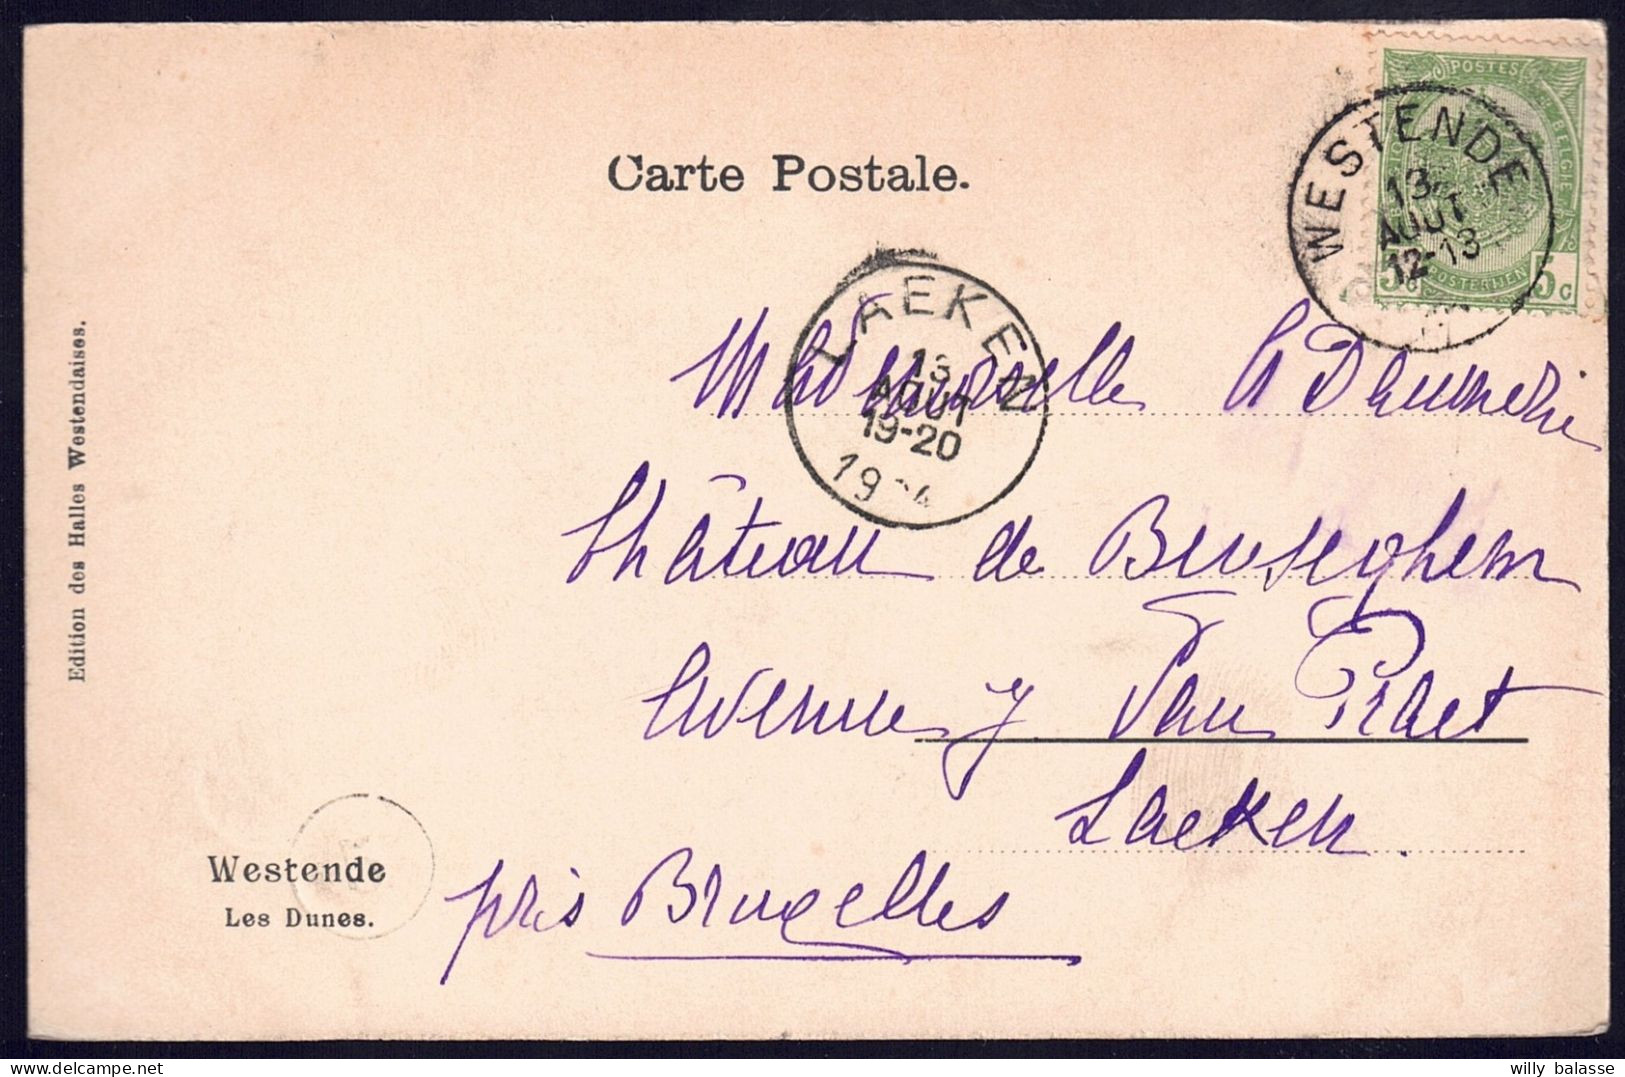 POSTES
BELGIQUE BELGIË
POSTERIJEN
5c 5c
WESTENDE
13
AOUT
12-13
Carte Postale.
LAEKEN
13
AOUT
19-20
Mademoiselle
Château de Beuseghem
Avenue J Van Praet
Laeken.
près Bruxelles
Westende
Les Dunes.
Edition des Halles Westendaises.
willy balasse